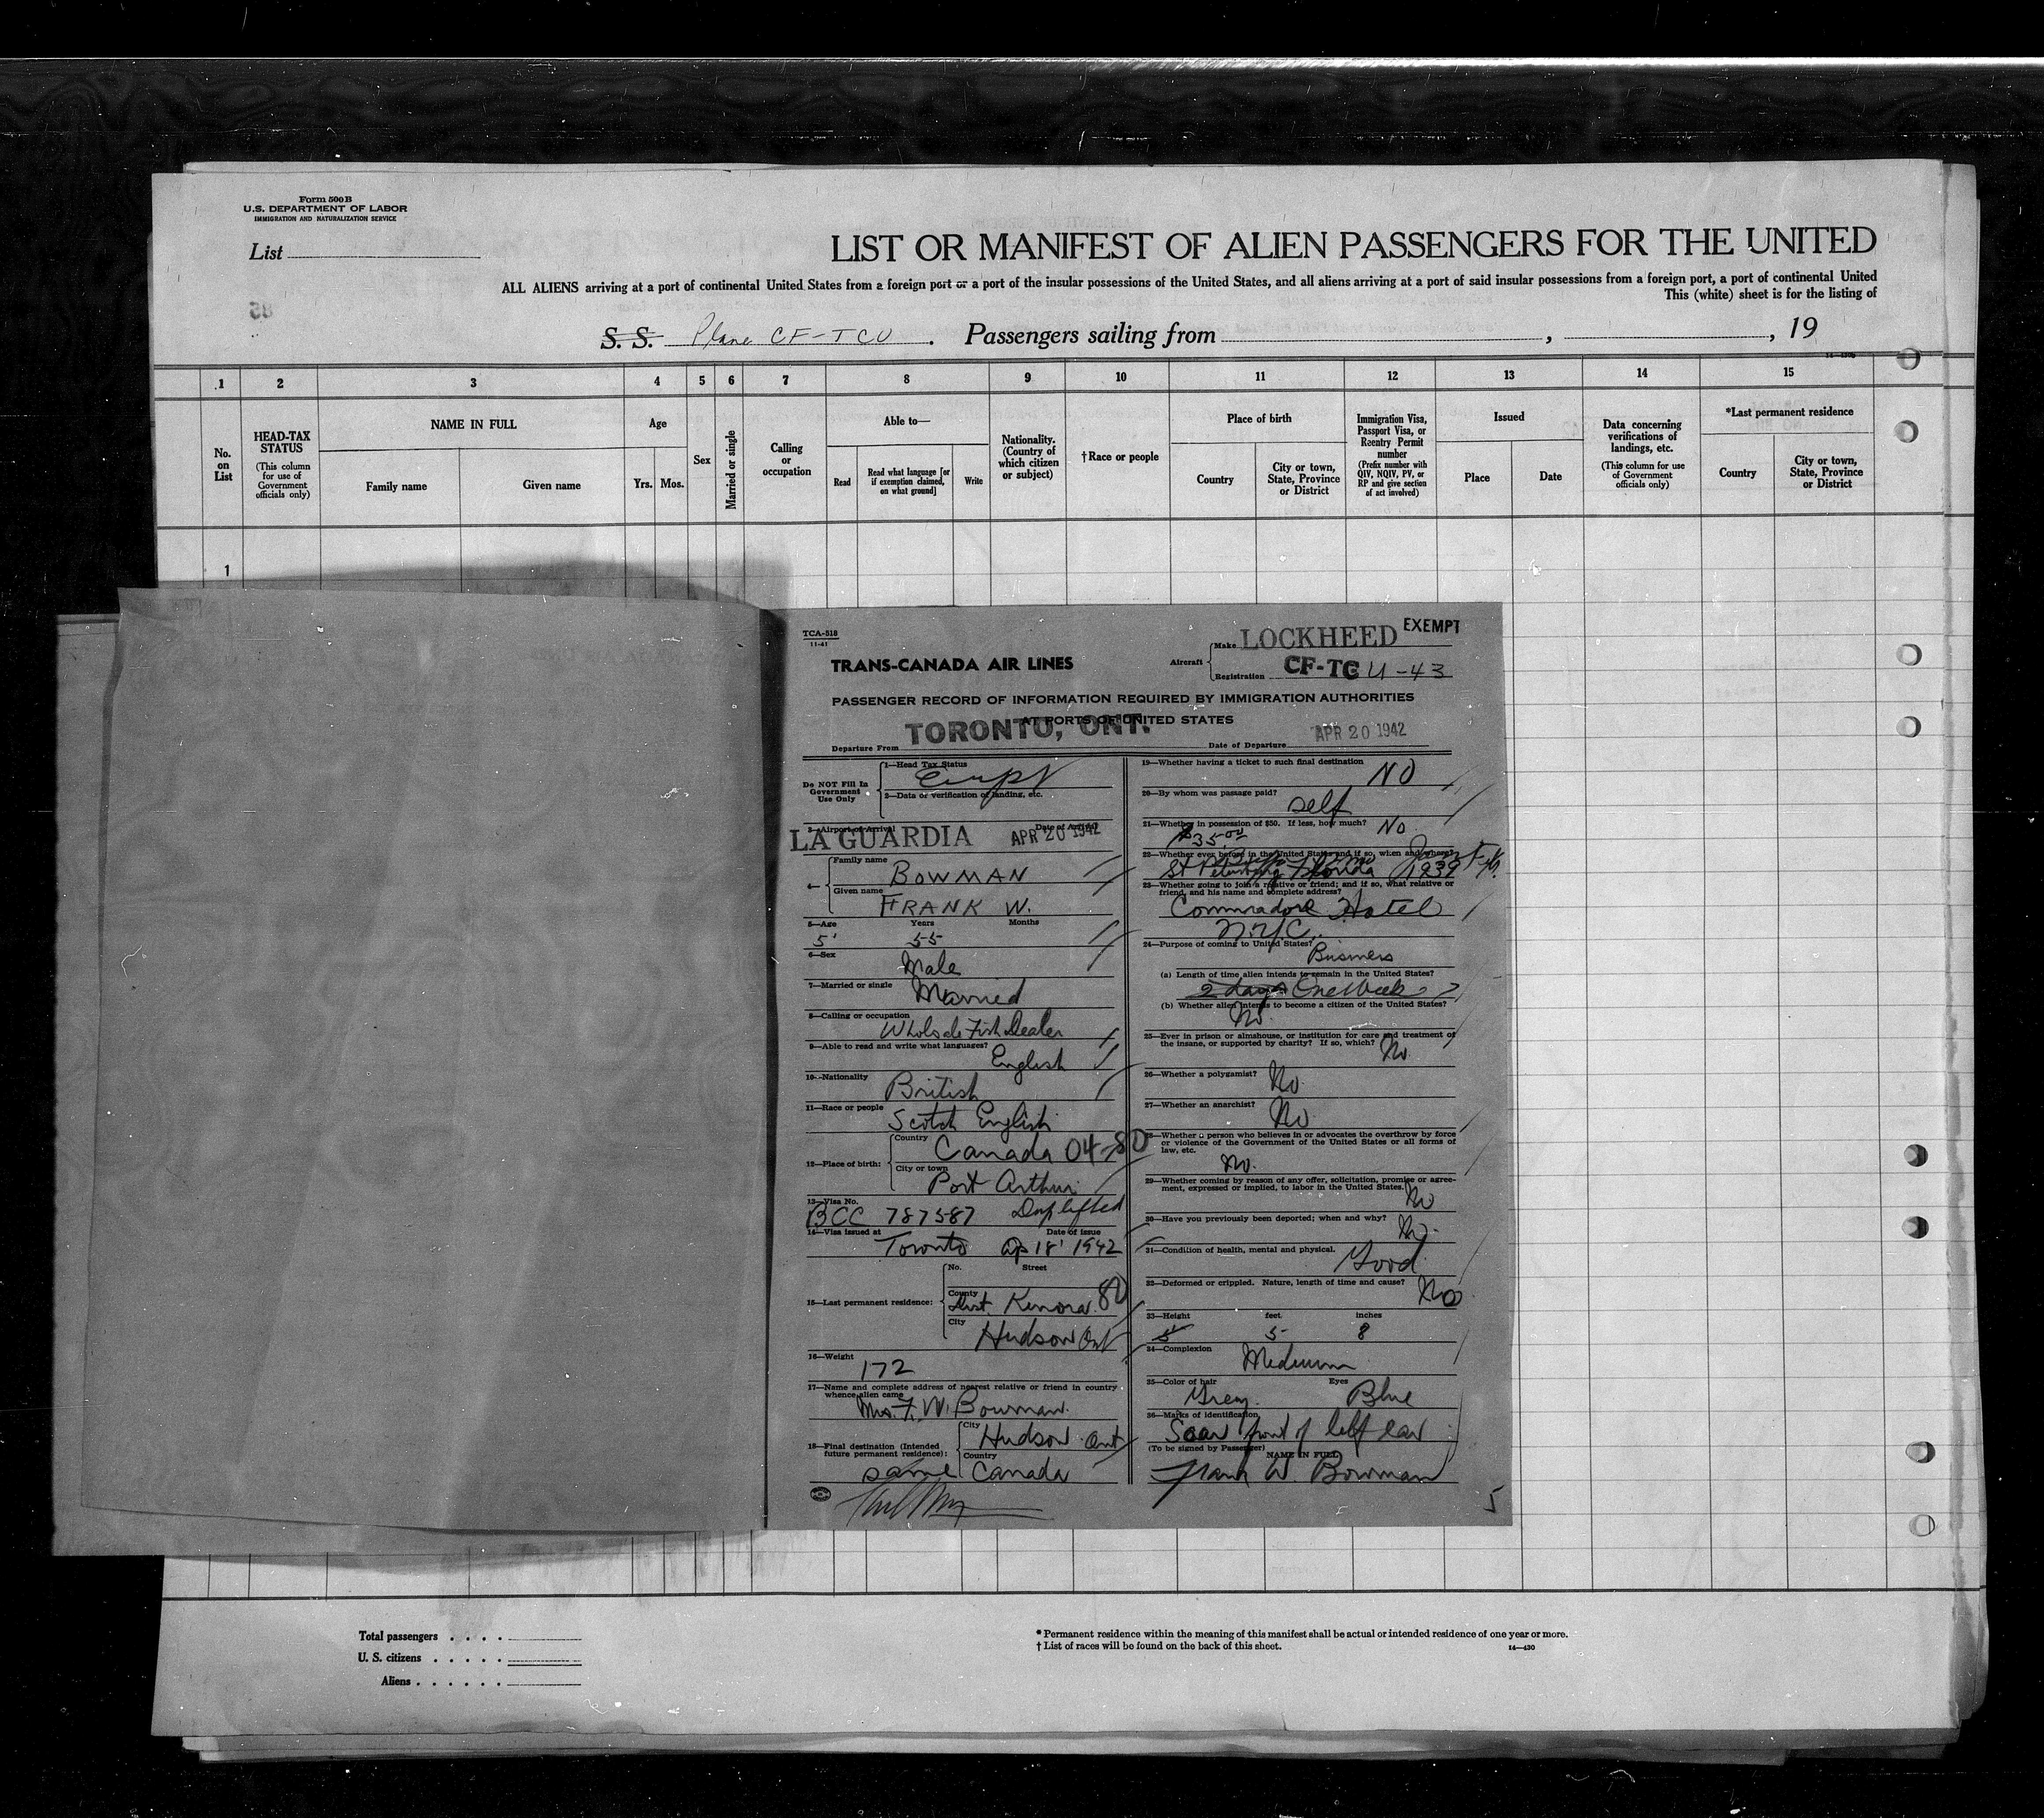 Form 500 B
U.S. DEPARTMENT OF LABOR
IMMIGRATION AND NATURALIZATION SERVICE
List
LIST OR MANIFEST OF ALIEN PASSENGERS FOR THE UNITED
ALL ALIENS arriving at a port of continental United States from a foreign port or a port of the insular possessions of the United States, and all aliens arriving at a port of said insular possessions from a foreign port, a port of continental United
This (white) sheet is for the listing of
S. S. Plane CF-TCU . Passengers sailing from , , 19
1 2 3 4 5 6 7 8 9 10 11 12 13 14 15
No. on List
HEAD-TAX STATUS
(This column for use of Government officials only)
NAME IN FULL
Family name
Given name
Age
Yrs. Mos.
Sex
Married or single
Calling or occupation
Able to—
Read
Read what language [or if exemption claimed, on what ground]
Write
Nationality. (Country of which citizen or subject)
† Race or people
Place of birth
Country
City or town, State, Province or District
Immigration Visa, Passport Visa, or Reentry Permit number
(Prefix number with QIV, NQIV, PV, or RP and give section of act involved)
Issued
Place
Date
Data concerning verifications of landings, etc.
(This column for use of Government officials only)
*Last permanent residence
Country
City or town, State, Province or District
1
TCA-518
11-41
EXEMPT
TRANS-CANADA AIR LINES
Aircraft
Make LOCKHEED
Registration CF-TC U-43
PASSENGER RECORD OF INFORMATION REQUIRED BY IMMIGRATION AUTHORITIES
AT PORTS OF UNITED STATES
Departure From TORONTO, ONT.
Date of Departure APR 20 1942
Do NOT Fill In Government Use Only
1—Head Tax Status
2—Data or verification of landing, etc.
3—Airport of Arrival LA GUARDIA
Date of Arrival APR 20 1942
4— Family name BOWMAN
Given name FRANK W.
5—Age Years Months
5' 55
6—Sex Male
7—Married or single Married
8—Calling or occupation
Wholsale Fish Dealer
9—Able to read and write what languages?
English
10—Nationality British
11—Race or people
Scotch English
12—Place of birth:
Country Canada 04-80
City or town Port Arthur
13—Visa No.
BCC 787587 Dup lifted
14—Visa issued at Date of issue
Toronto Ap 18' 1942
15—Last permanent residence:
No. Street
County Dist. Kenora 80
City Hudson Ont
16—Weight
172
17—Name and complete address of nearest relative or friend in country whence alien came
Mrs. F. W. Bowman.
18—Final destination (Intended future permanent residence):
City Hudson Ont
Country
same Canada
19—Whether having a ticket to such final destination
NO
20—By whom was passage paid?
self
21—Whether in possession of $50. If less, how much? No
$35.00
22—Whether ever before in the United States and if so, when and where?
St Petersburg Florida 1939
23—Whether going to join a relative or friend; and if so, what relative or friend, and his name and complete address?
Commradore Hotel
N.Y.C.
24—Purpose of coming to United States?
Business
(a) Length of time alien intends to remain in the United States?
2 days One Week
(b) Whether alien intends to become a citizen of the United States?
No.
25—Ever in prison or almshouse, or institution for care and treatment of the insane, or supported by charity? If so, which? No.
26—Whether a polygamist? No.
27—Whether an anarchist? No.
28—Whether a person who believes in or advocates the overthrow by force or violence of the Government of the United States or all forms of law, etc.
No.
29—Whether coming by reason of any offer, solicitation, promise or agreement, expressed or implied, to labor in the United States. No
30—Have you previously been deported; when and why? No.
31—Condition of health, mental and physical. Good.
32—Deformed or crippled. Nature, length of time and cause? No
33—Height feet. inches
5 5 8
34—Complexion
Medium
35—Color of hair Eyes
Grey. Blue
36—Marks of identification
Scar front of left ear
(To be signed by Passenger) NAME IN FULL
Frank W. Bowman
5
Total passengers . . . .
U. S. citizens . . . . .
Aliens . . . . . .
* Permanent residence within the meaning of this manifest shall be actual or intended residence of one year or more.
† List of races will be found on the back of this sheet.
14—430